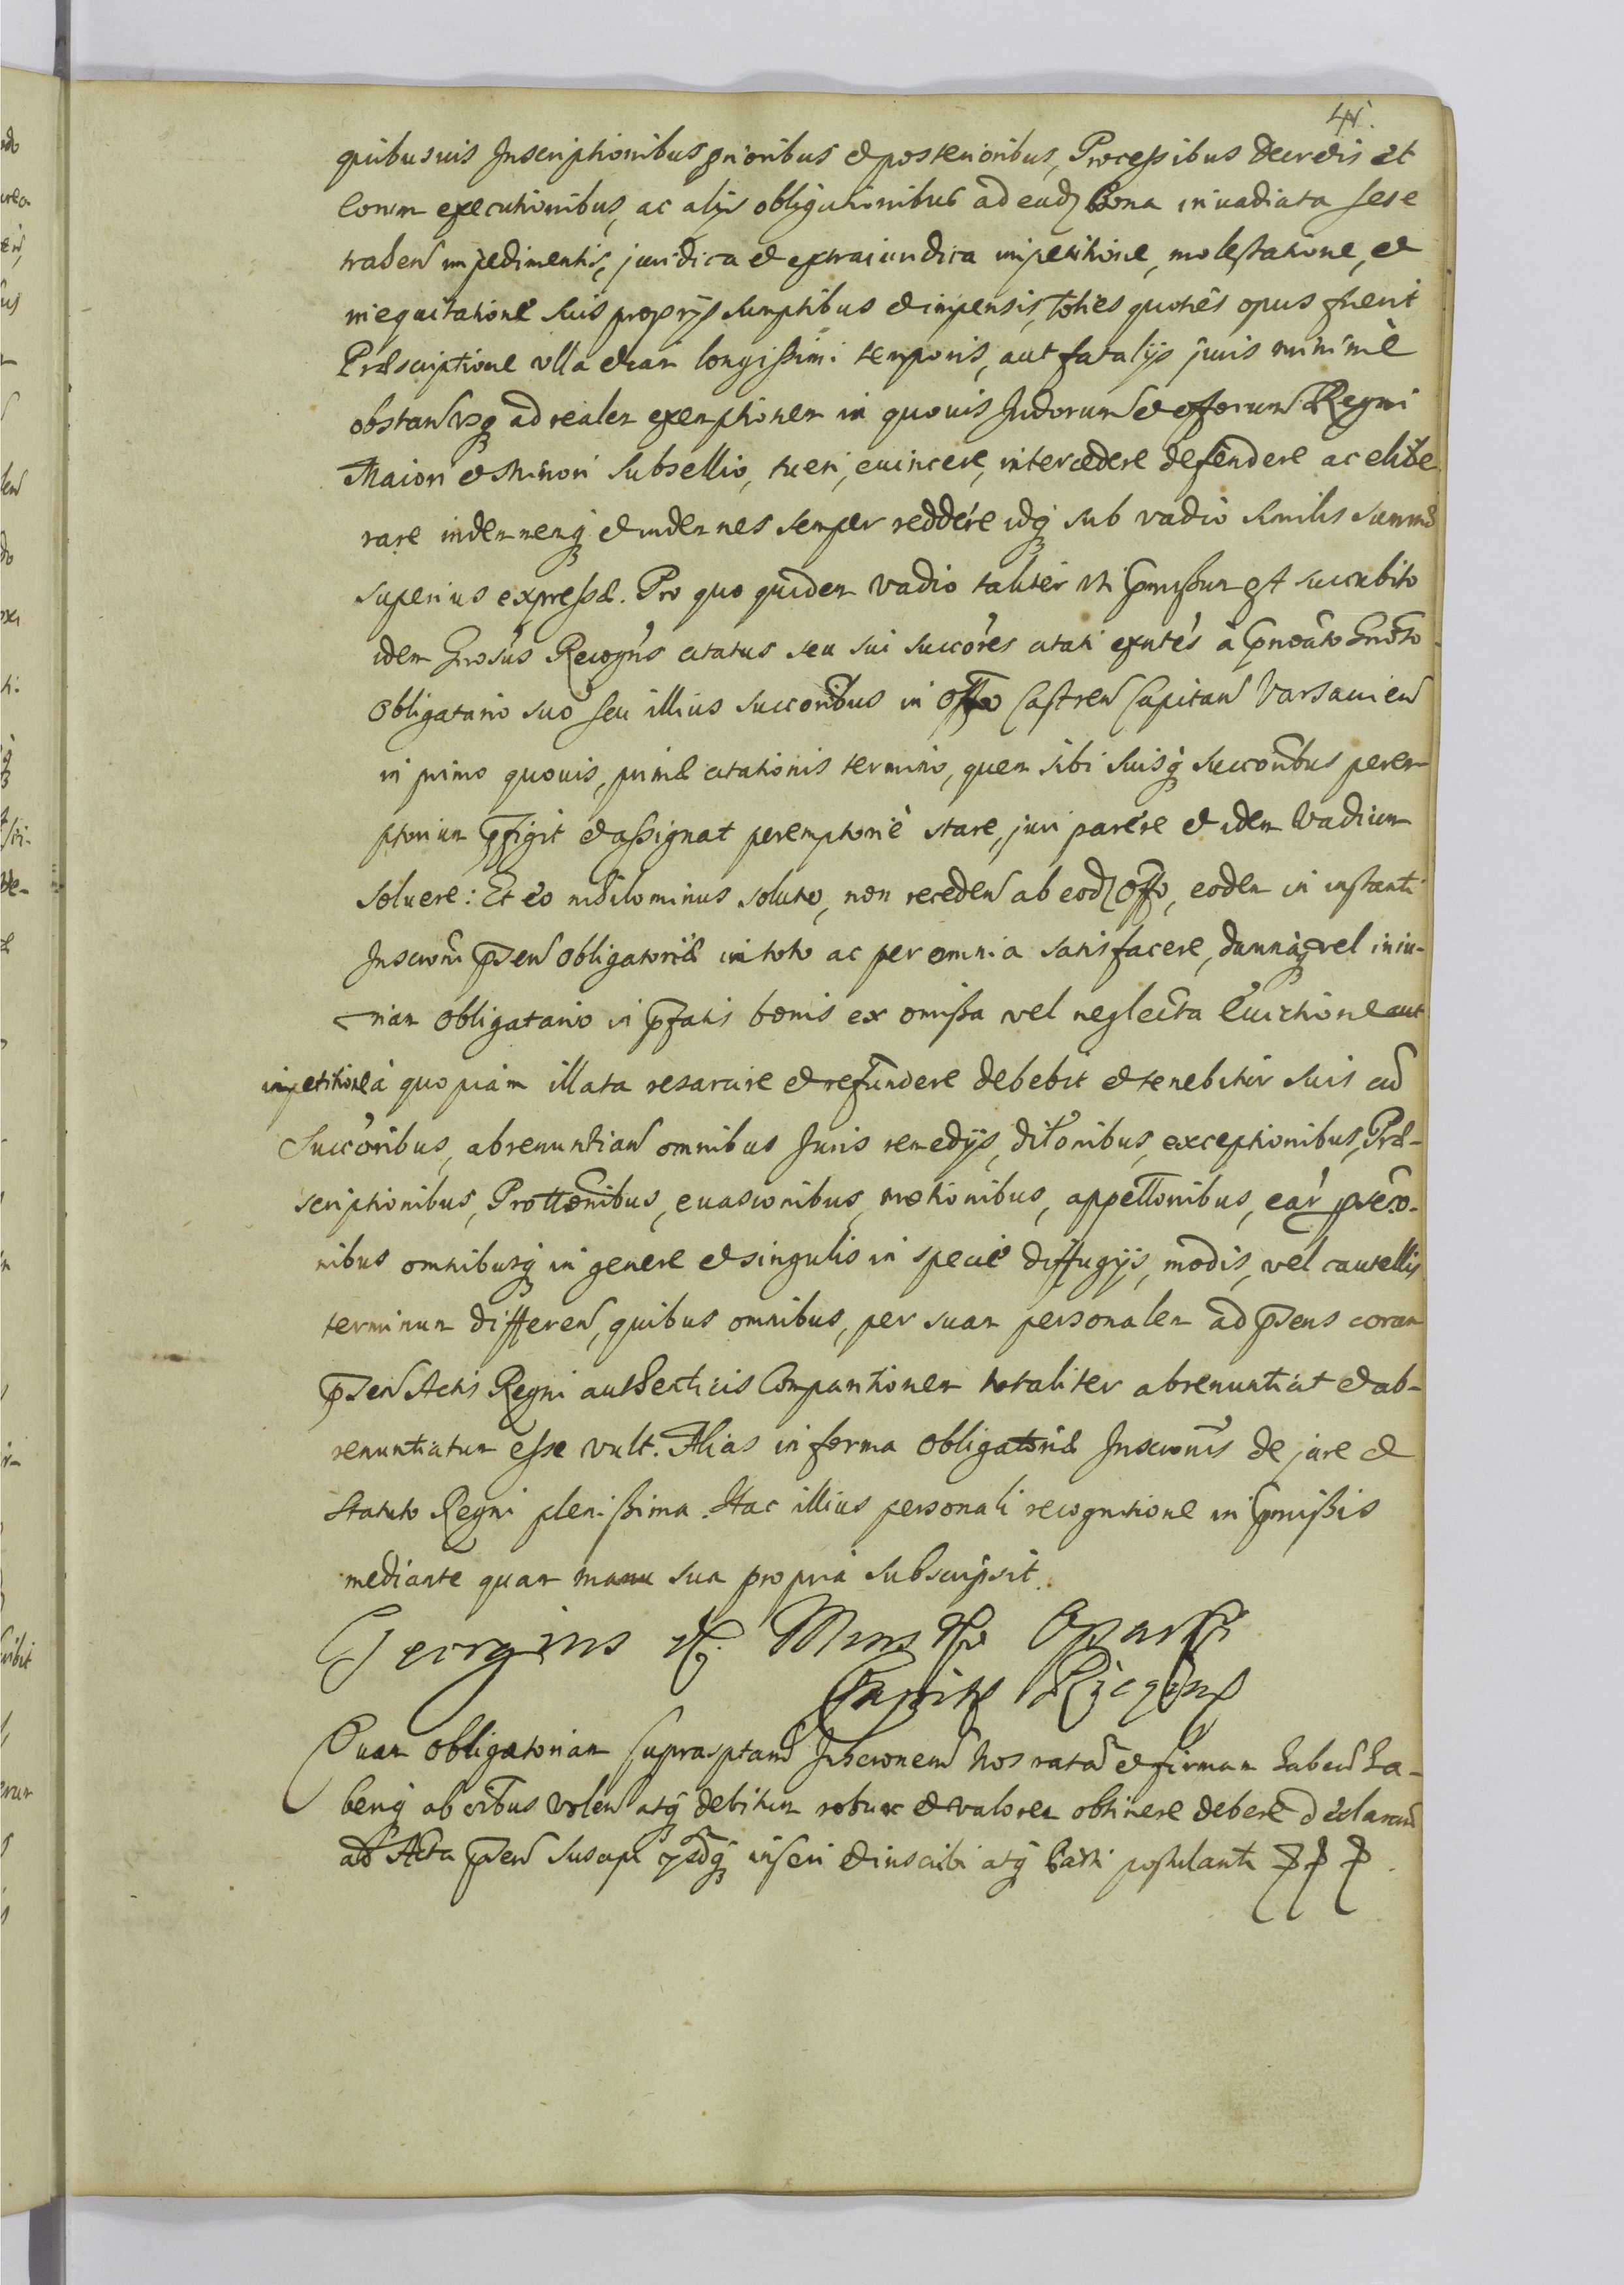 41.
quibusuis Inscriptionibus prioribus et posterioribus, Processibus Decretis et
Eorum executionibus, ac alijs obligationibus ad eadz Bona inuadiata sese
trahen impedimentis, juridica et extraiuridica impetitione, molestatione, et
inequitatione suis proprijs sumptibus et impensis, toties quoties opus fuerit
Præscriptione vlla etiam longissimi temporis, aut fatalijs juris minimè
obstan vsq ad realem exemptionem in quouis Judiorum et offiorum Regni
Maiori et Minori Subsellio, tueri, euincere, intercedere defendere ac elibe
rare indemnemq et indemnes semper reddere idq sub vadio similis summæ
superius expressæ. Pro quo quidem vadio taliter vti pmissum est succubito
idem Gnosus Recogns citatus seu sui succores citati exntes à pnoato Gnoso
Obligatario suo seu illius succoribus in Offo Castren Capitan Varsauien
in primo quouis, primæ citationis termino, quem sibi suisq succoribus perem
ptorium pfigit et assignat peremptoriè stare, juri parere et idem Vadium
soluere: Et eo nihilominus soluto, non receden ab eodz Offo, eodem in instanti
Inscrioni pnsen obligatoriæ in toto ac per omnia satisfacere, damnaq vel iniu-
riam obligatario in pfatis bonis ex omissa vel neglecta Euictione aut
impetitione à quopiam illata resarcire et refundere debebit et tenebitur suis cum
Succoribus, abrenuntian omnibus Juris remedijs, dilonibus, exceptionibus, Præ-
scriptionibus, Prottonibus, euasionibus, motionibus, appellonibus, ear pseqo-
nibus omnibusq in genere et singulis in specie diffugijs, modis, vel cautellis
terminum differen, quibus omnibus, per suam personalem ad pnsens coram
pnsen Actis Regni authenticis Comparitionem totaliter abrenuntiat et ab-
renuntiatum esse vult. Alias in forma obligatoriæ Inscrionis de jure et
Statuto Regni plenissima. Hac illius personali recognitione in pmissis
mediante quam manu sua propria subscripsit.
Georgius
Quam Obligatoriam suprasptam Inscrionem Nos ratam et firmam haben ha-
beriq ab oibus volen atq debitum robur et valorem obtinere debere declaram
ad Acta pnsen suscipi ysdq inseri et inscribi atq